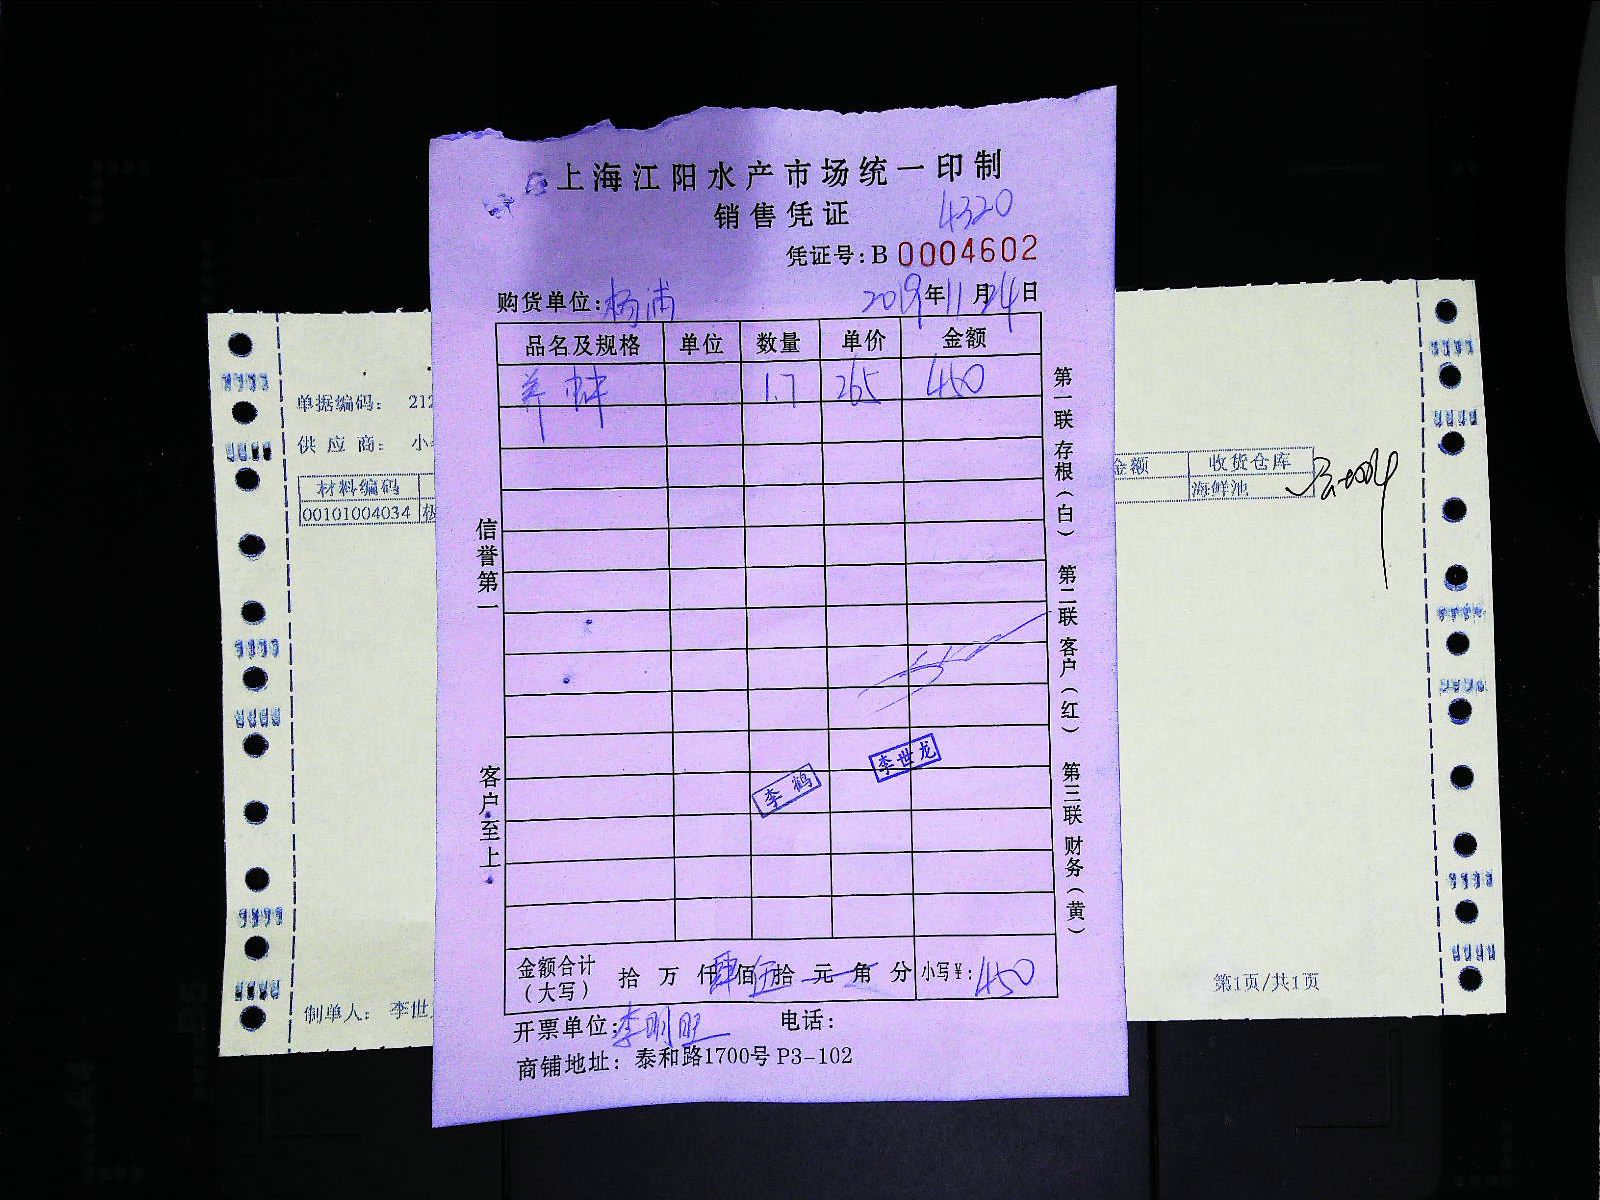 上海江阳水产市场统一印制
销售凭证
4320
凭证号:B 0004602
购货单位:杨浦 2019年11月24日
品名及规格 单位 数量 单价 金额
1.7 265 450
信誉第一
客户至上
第一联 存根(白)
第二联 客户(红)
第三联 财务(黄)
李鹤
李世龙
金额合计(大写) 拾 万 仟 肆佰 伍拾 元 角 分 小写¥:450
开票单位:李明旺 电话:
商铺地址: 泰和路1700号 P3-102
单据编码: 212
供应商: 小
材料编码
00101004034
制单人: 李世
金额 收货仓库
海鲜池
第1页/共1页